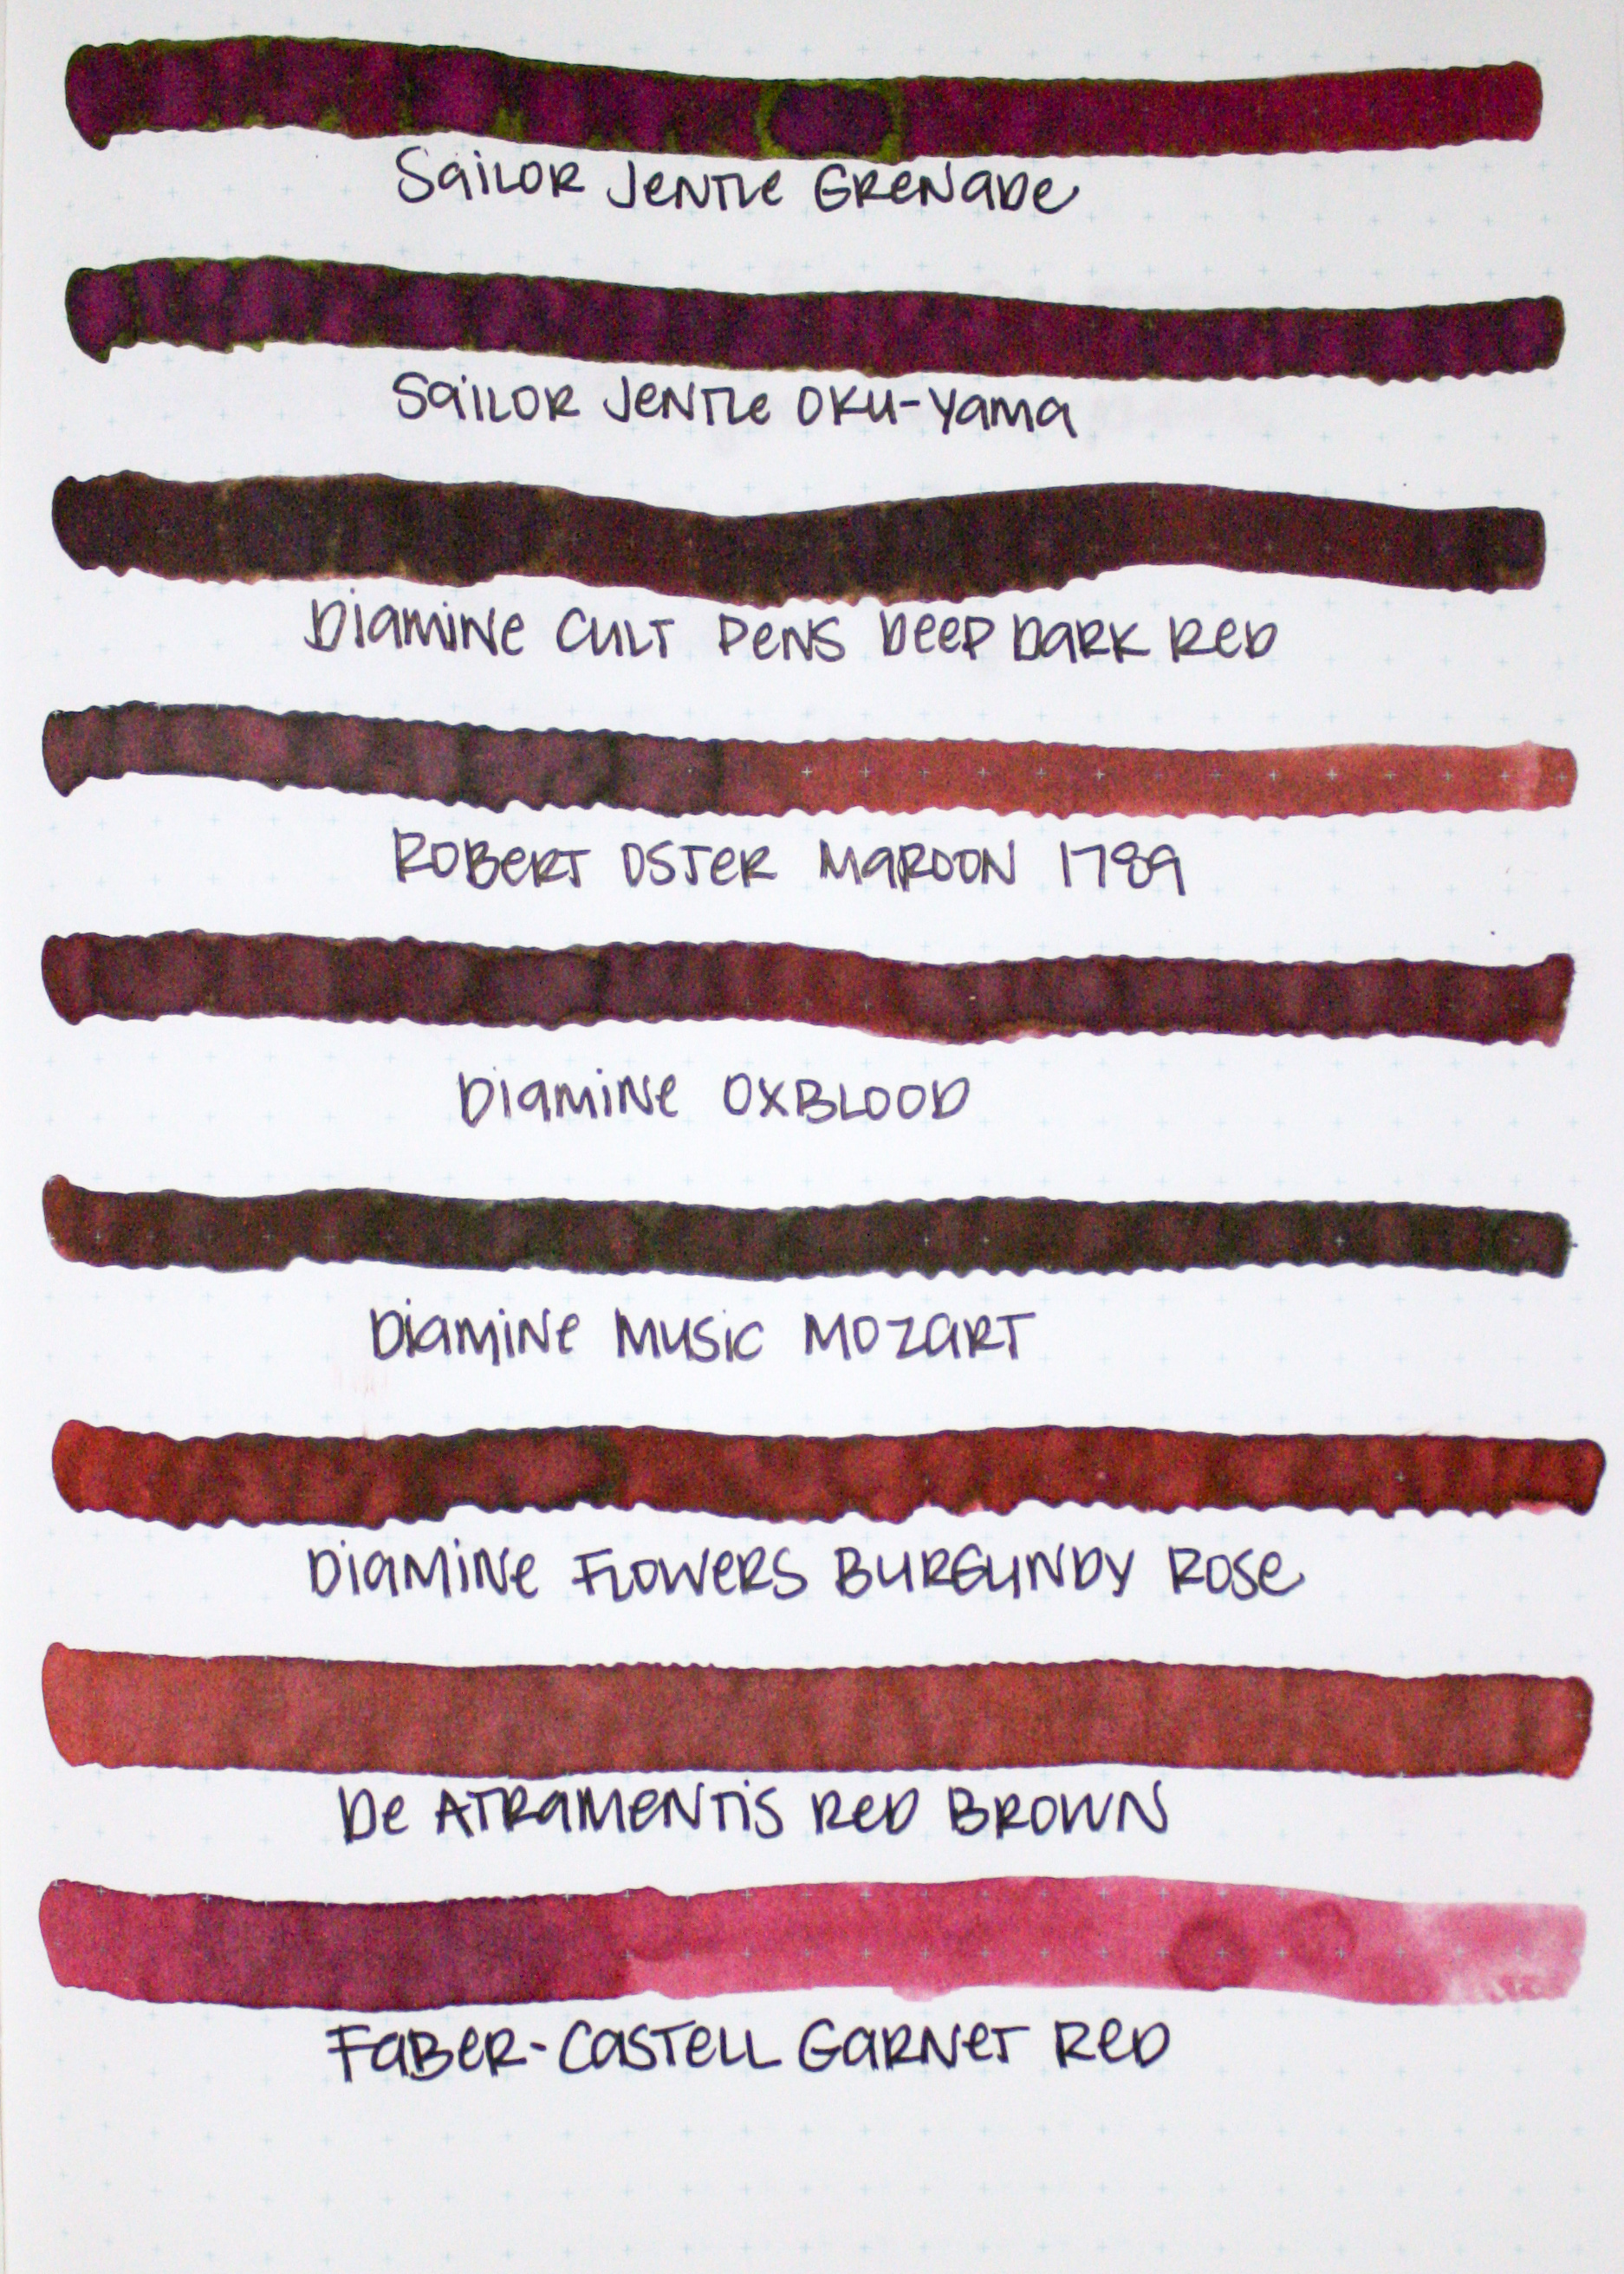 Sailor Jentle Grenade
Sailor Jentle Oku-Yama
Diamine Cult Pens Deep Dark Red
Robert Oster Maroon 1789
Diamine Oxblood
Diamine Music Mozart
Diamine Flowers Burgundy Rose
De Atramentis Red Brown
Faber-Castell Garnet Red